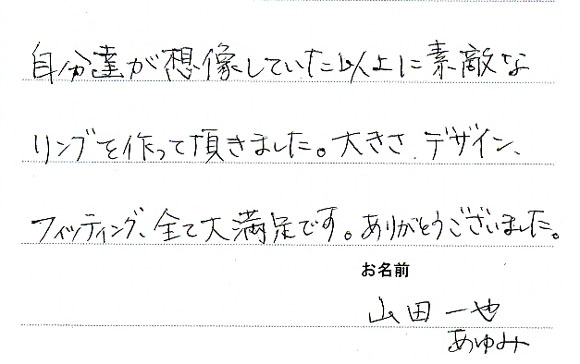 自分達が想像していた以上に素敵な
リングを作って頂きました。大きさ、デザイン、
フィッティング、全て大満足です。ありがとうございました。
お名前
山田 一也
あゆみ